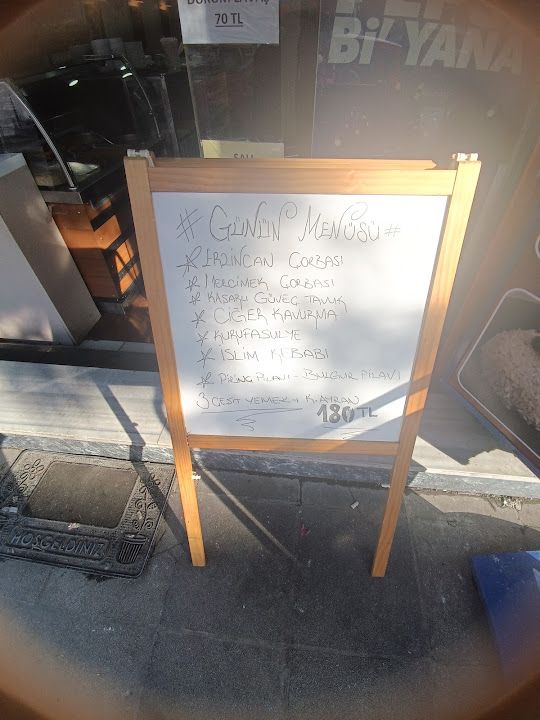 70 TL
Bi' YANA
# GÜNÜN MENÜSÜ #
* ERZİNCAN ÇORBASI
* MERCİMEK ÇORBASI
* KAŞARLI GÜVEÇ TAVUK
* CİĞER KAVURMA
* KURUFASULYE
* İSLİM KEBABI
* PİRİNÇ PİLAVI - BULGUR PİLAVI
3 ÇEŞİT YEMEK + K. AYRAN
180 TL
HOŞGELDİNİZ